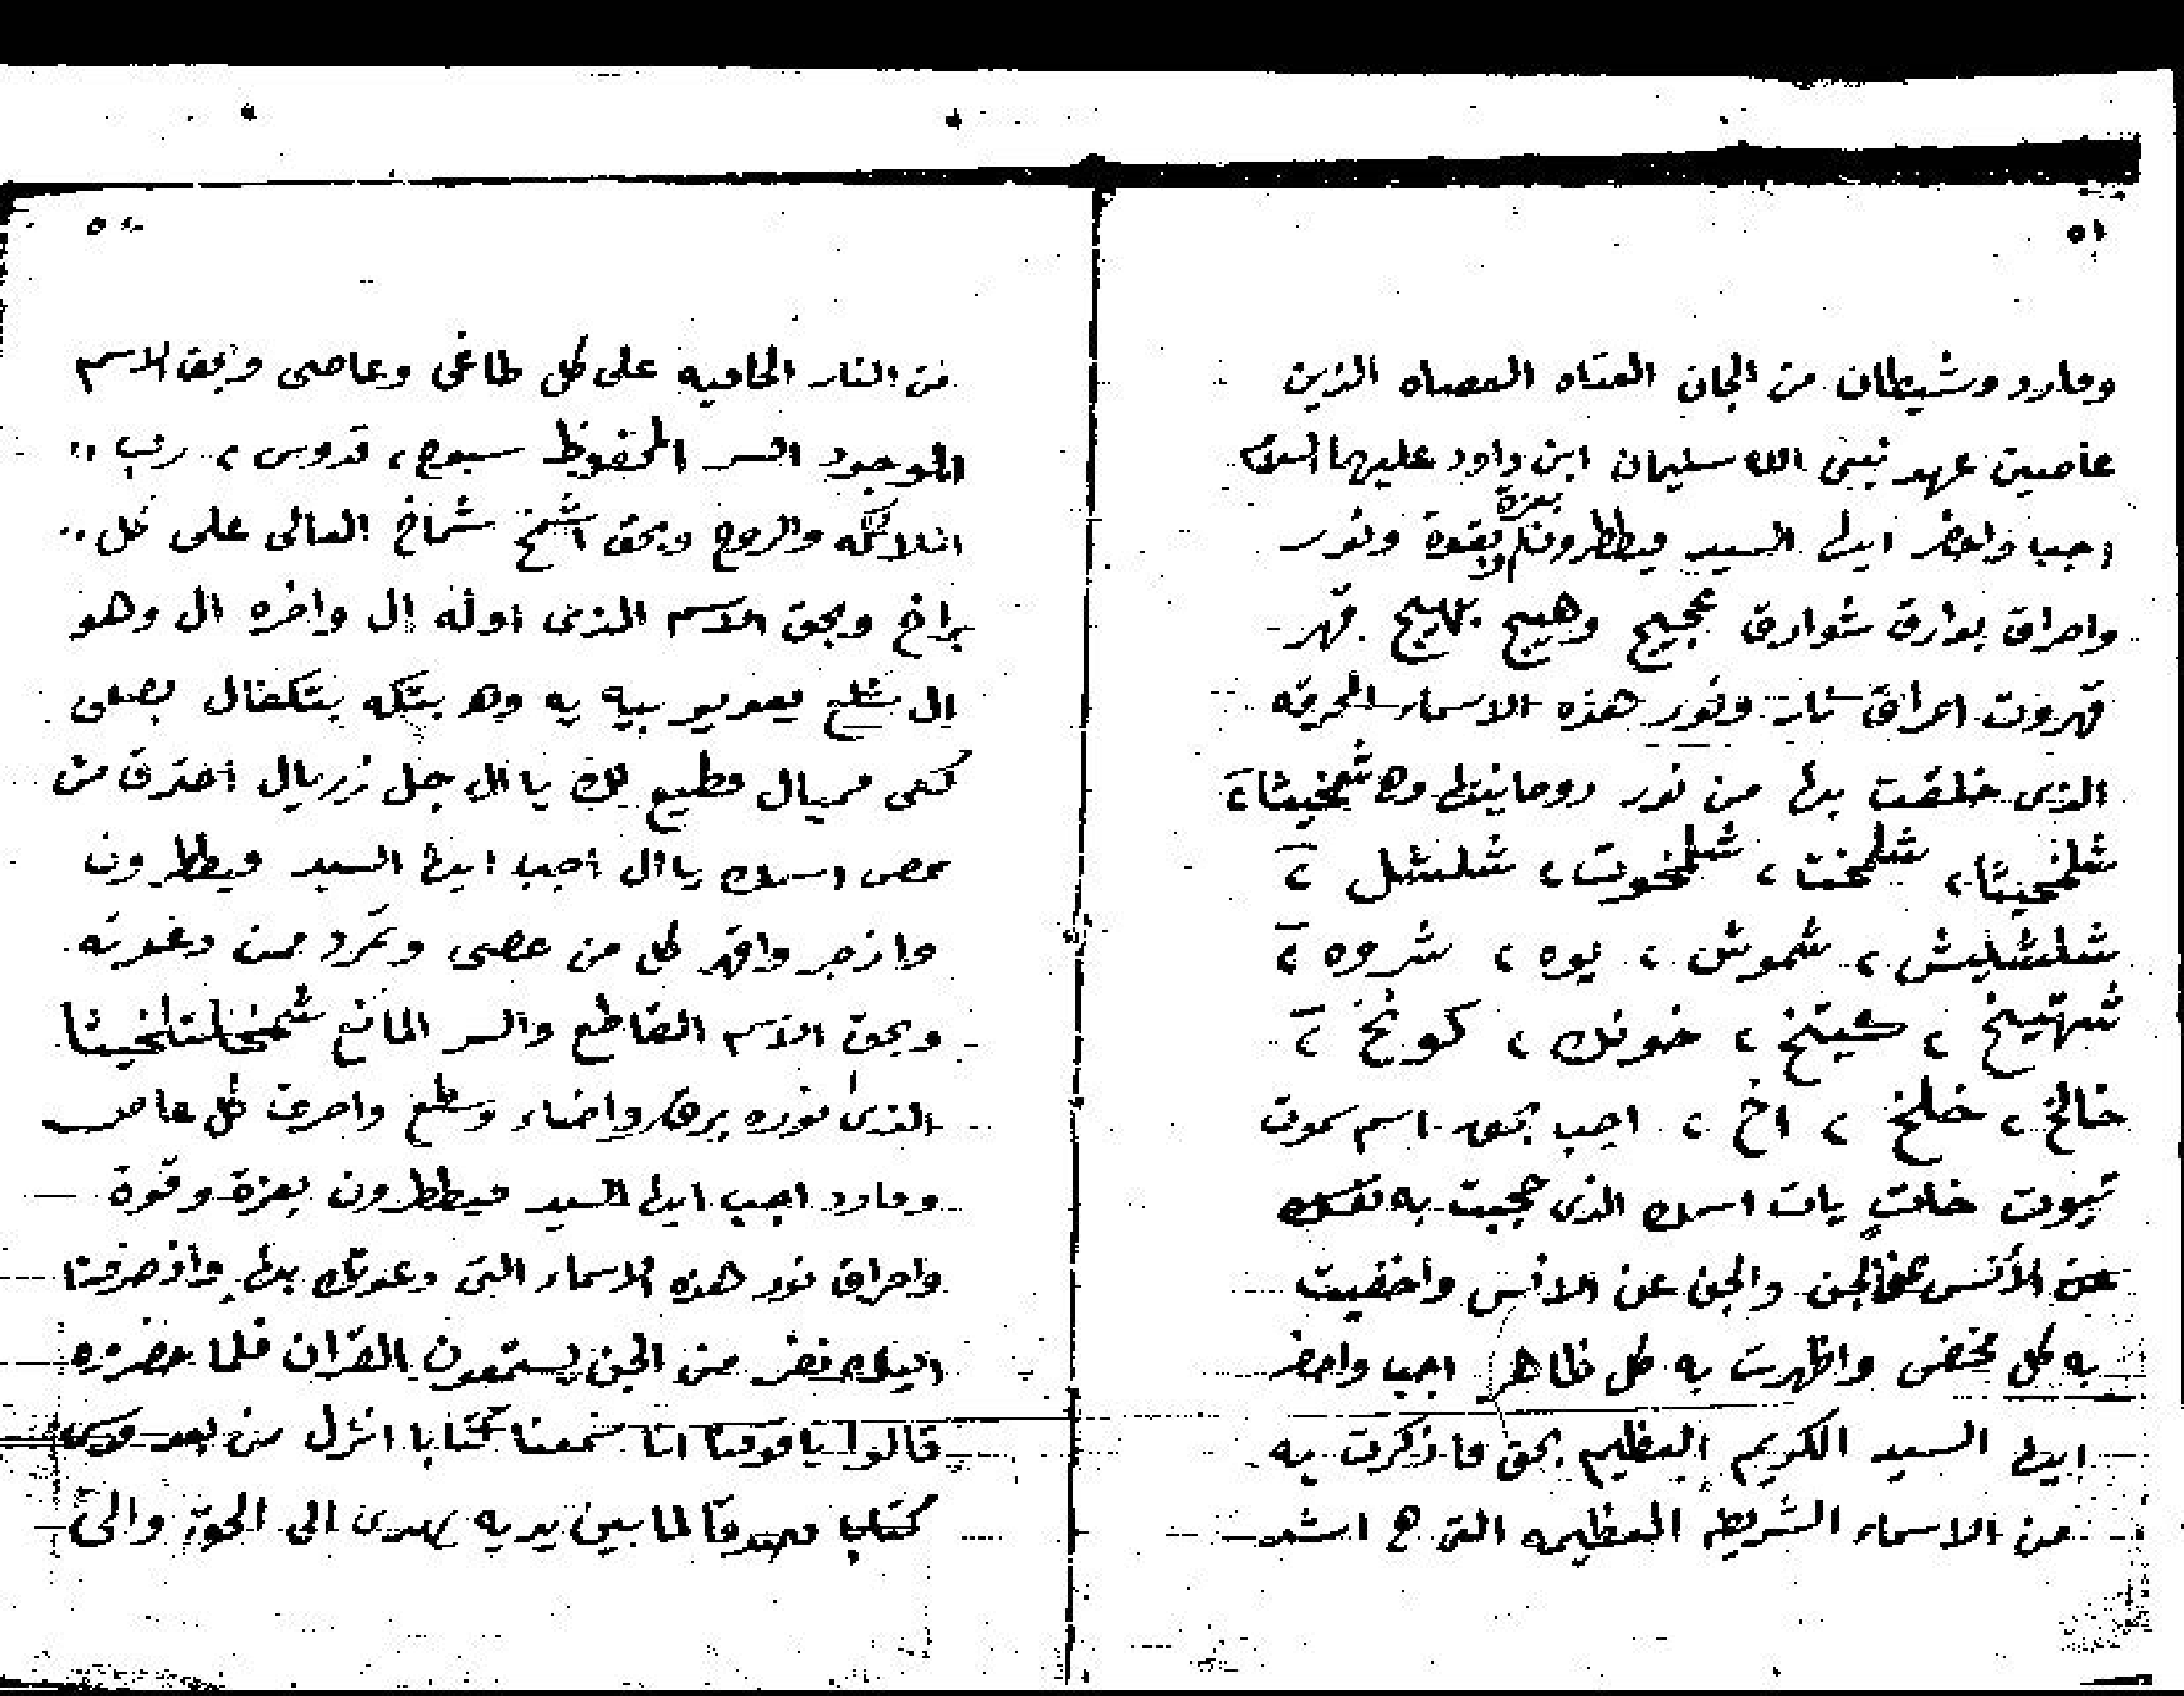 ٥١
ومارد وشيطان من الجان العتاه العصاه الذين
عاصين عهد نبى الله سليمان ابن داود عليهما السلام
اجب واحضر ايها السيد ميططرون بعزة وبقوة ونور
واحراق بوارق شوارق عجيج وهيج بهيج قهر
قهروت احراق نار ونور هذه الاسماء المحرقه
الذى خلقت بها من نور روحانيتها وهى شمخيثا ،
شلمخيثا ، شلمخت ، شلمخوت ، شلشل ،
شلشليش ، شموش ، يوه ، شروه ،
شهتيخ ، كيتخ ، خونك ، كونخ ،
خالخ ، خلخ ، اخ ، اجب بحق اسم سموت
تيوت خلت يات اسمك الذى حجبت به نفسك
عن الأنس عن الجن والجن عن الانس واخفيت
به كل مخفى واظهرت به كل ظاهر اجب واحضر
ايها السيد الكريم العظيم بحق ما ذكرت به
من الاسماء الشريفه العظيمه التى هى اشد
٥٢
من النار الحاميه على كل طاغى وعاصى وبحق الاسم
الموجود السر المحفوظ سبوح ، قدوس ، رب ..
الملائكه والروح وبحق اشمخ شماخ العالى على كل ..
براخ وبحق الاسم الذى اوله ال واخره ال وهو
ال شلع يعويو بيه يه وه بتكه بتكفال بصعى
كعى مميال مطيع لك يا ال جل زريال احترق من
عصى اسمك يا ال اجب ايها السيد ميططرون
وازجر واقهر كل من عصى وتمرد عن دعوته
وبحق الاسم القاطع والسر المانع
الذى نوره برق واضاء وسطع واحرق كل عاص
ومارد اجب ايها السيد ميططرون بعزة وقوة
واحراق نور هذه الاسماء التى دعوتك بها واذ صرفنا
اليك نفر من الجن يستمعون القران فلما حضروه
قالوا يا قومنا انا سمعنا كتابا انزل من بعد موسى
كتاب مصدقا لما بين يديه يهدى الى الحق والى